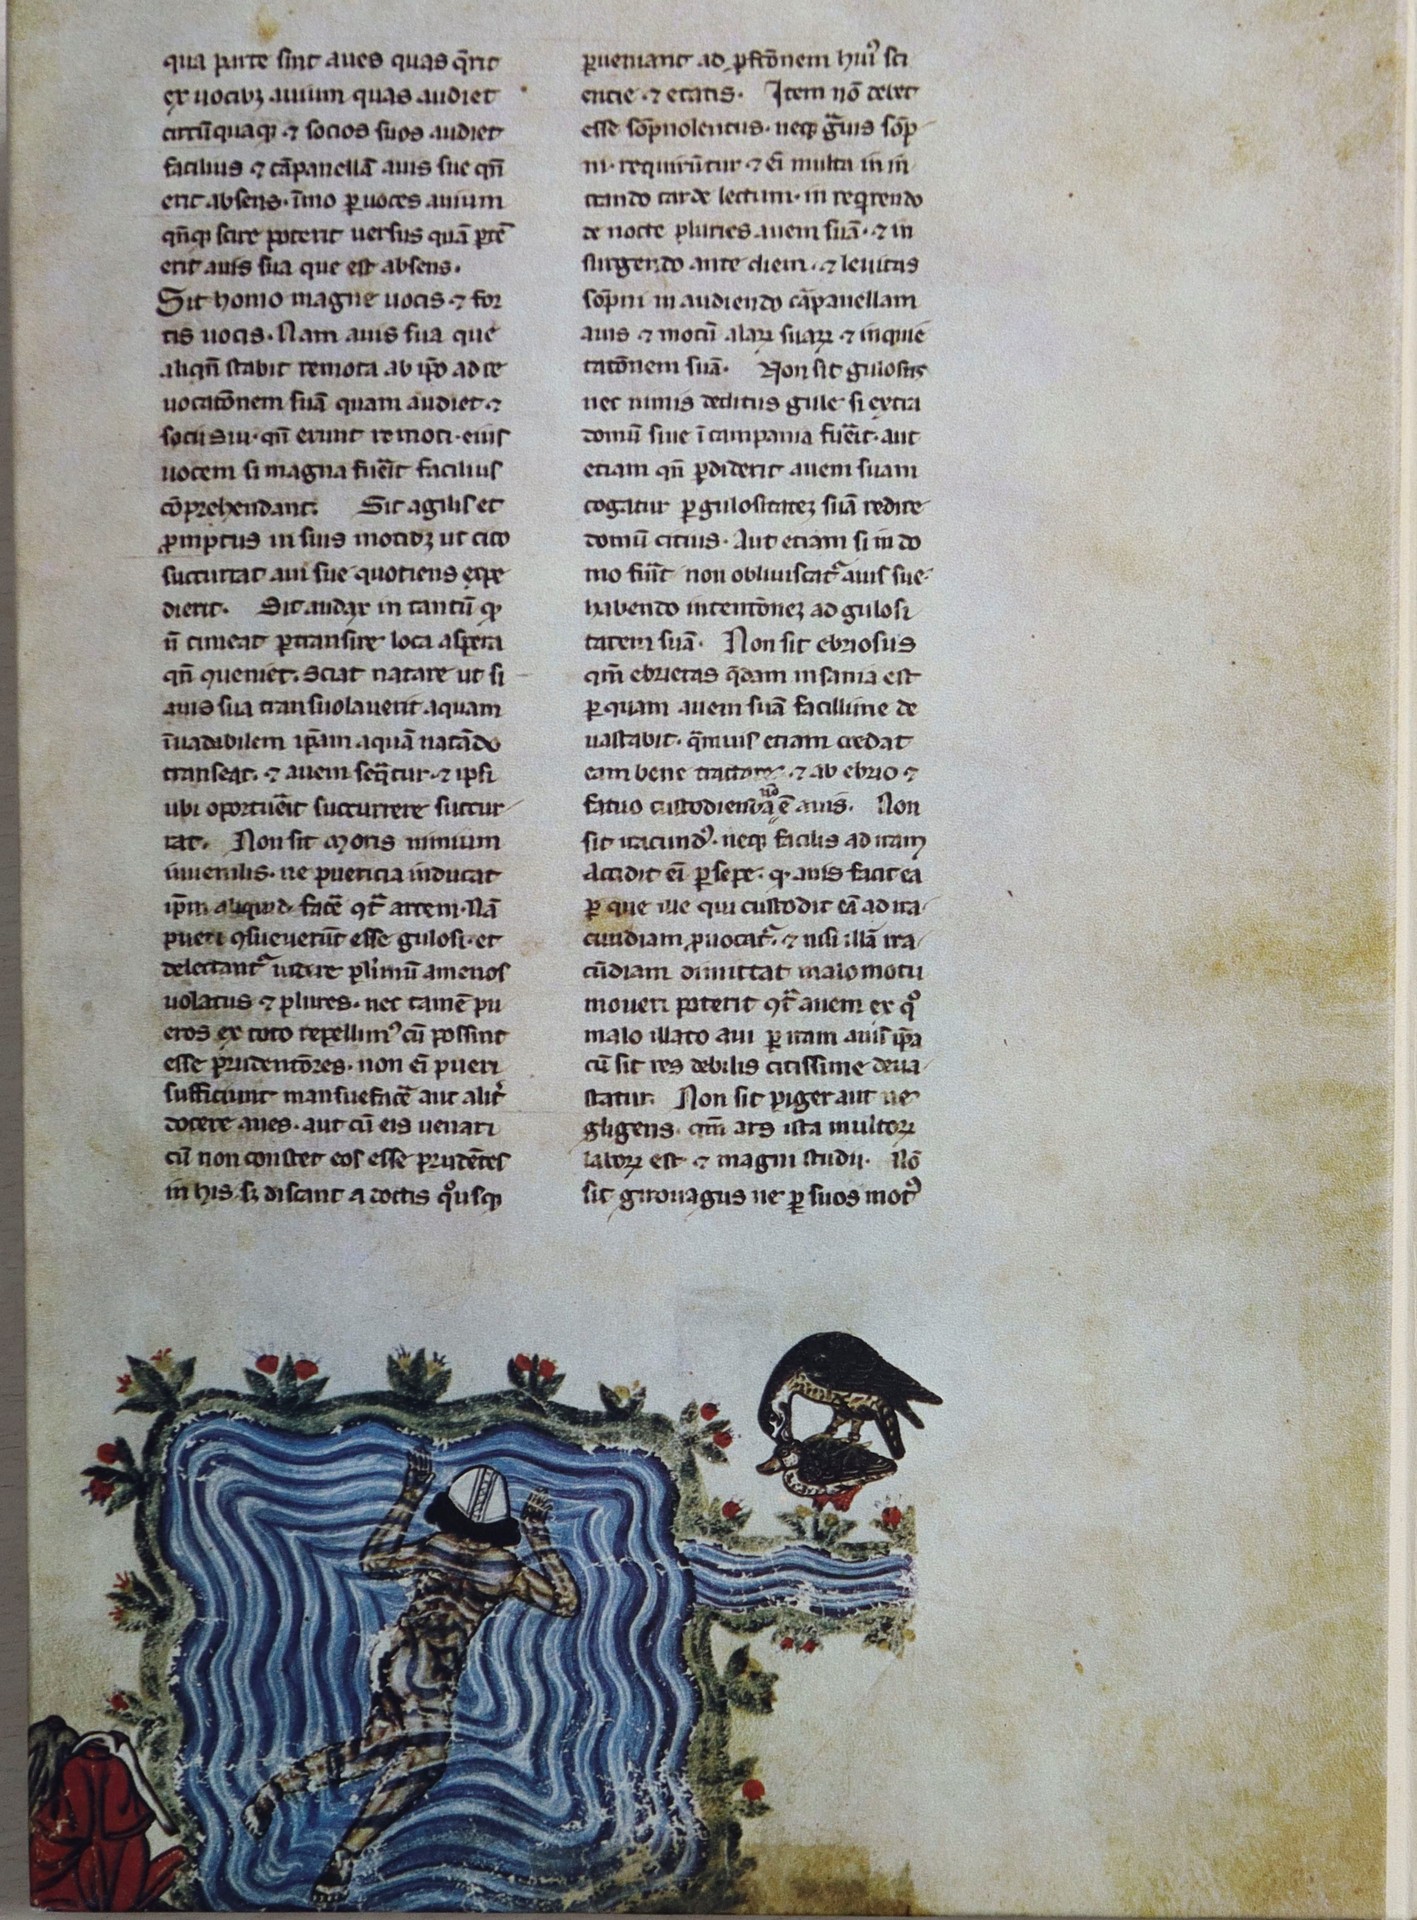 qua parte sint aues quas q̄rit
ex uocibꝫ auium quas audiet
circūquaqꝫ ⁊ socios suos audiet
facilius ⁊ cāpanellā auis sue qn̄
erit absens. īmo ꝑ uoces auium
qn̄qꝫ scire poterit uersus quā ꝑtē
erit auis sua que est absens.
Sit homo magne uocis ⁊ for
tis uocis. Nam auis sua que
aliqn̄ stabit remota ab ip̄o ad re
uocatōnem suā quam audiet ⁊
socii sui qn̄ erunt remoti eius
uocem si magna fūit facilius
cōprehendant. Sit agilis et
ꝓmptus in suis motibꝫ ut cito
succurrat aui sue quotiens expe
dierit. Sit audax in tantū ꝙ
n̄ timeat ꝑtransire loca aspera
qn̄ ꝯueniet. Sciat natare ut si
auis sua transuolauerit aquam
īuadibilem ip̄am aquā natādo
transeat. ⁊ auem seq̄tur. ⁊ ipsi
ubi oportuēit succurrere succur
rat. Non sit moris nimium
iuuenilis. ne puericia inducat
ip̄m aliquid facē ꝯt̄ artem. Nā
pueri ꝯsueuerūt esse gulosi. et
delectant᷑ uidere plīmū amenos
uolatus ⁊ plures. nec tamē pu
eros ex toto repellimꝰ cū possint
esse prudentōres. non ei̅ pueri
sufficiunt mansuefacē aut alit̄
docere aues. aut cū eis uenari
cū non constet eos esse prudētes
in his sꝫ discant a doctis qͦusqꝫ
ꝑueniant ad ꝑfctōnem huiꝰ sci
encie. ⁊ etatis. Item nō debet
esse sōpnolentus. neqꝫ gͣuis sōp
ni. requirūtur ⁊ ei̅ multa in in
trando tarde lectum. in reqrendo
de nocte pluries auem suā. ⁊ in
surgendo ante diem. ⁊ leuitas
sōpni in audiendo cāpanellam
auis ⁊ motū alaꝝ suaꝝ ⁊ inquie
tatōnem suā. Non sit gulosus
nec nimis deditus gule si extra
domū siue ī campania fuēit. aut
etiam qn̄ ꝑdiderit auem suam
cogatur ꝑ gulositatēꝫ suā redire
domū citius. Aut etiam si in do
mo fūit non obliuiscat᷑ auis sue
habendo intentōnēꝫ ad gulosi
tatem suā. Non sit ebriosus
qm̄ ebrietas q̄dam insania est
ꝑ quam auem suā facillime de
uastabit. q̄muis etiam credat
eam bene tractare. ⁊ ab ebrio ⁊
fatuo custodienda nō ē auis. Non
sit iracundꝰ. neqꝫ facilis ad iram
Accidit ei̅ ꝑsepe. ꝙ auis facit ea
ꝑ que ille qui custodit eā ad ira
cundiam ꝓuocat᷑. ⁊ nisi illā ira
cūdiam dimittat malo motu
moueri poterit ꝯt̄ auem ex qͦ
malo illato aui ꝑ iram auis ip̄a
cū sit res debilis citissime deua
statur. Non sit piger aut ne
gligens. qm̄ ars ista multoꝝ
laboꝝ est ⁊ magni studii. Nō
sit girouagus ne ꝑ suos motꝰ